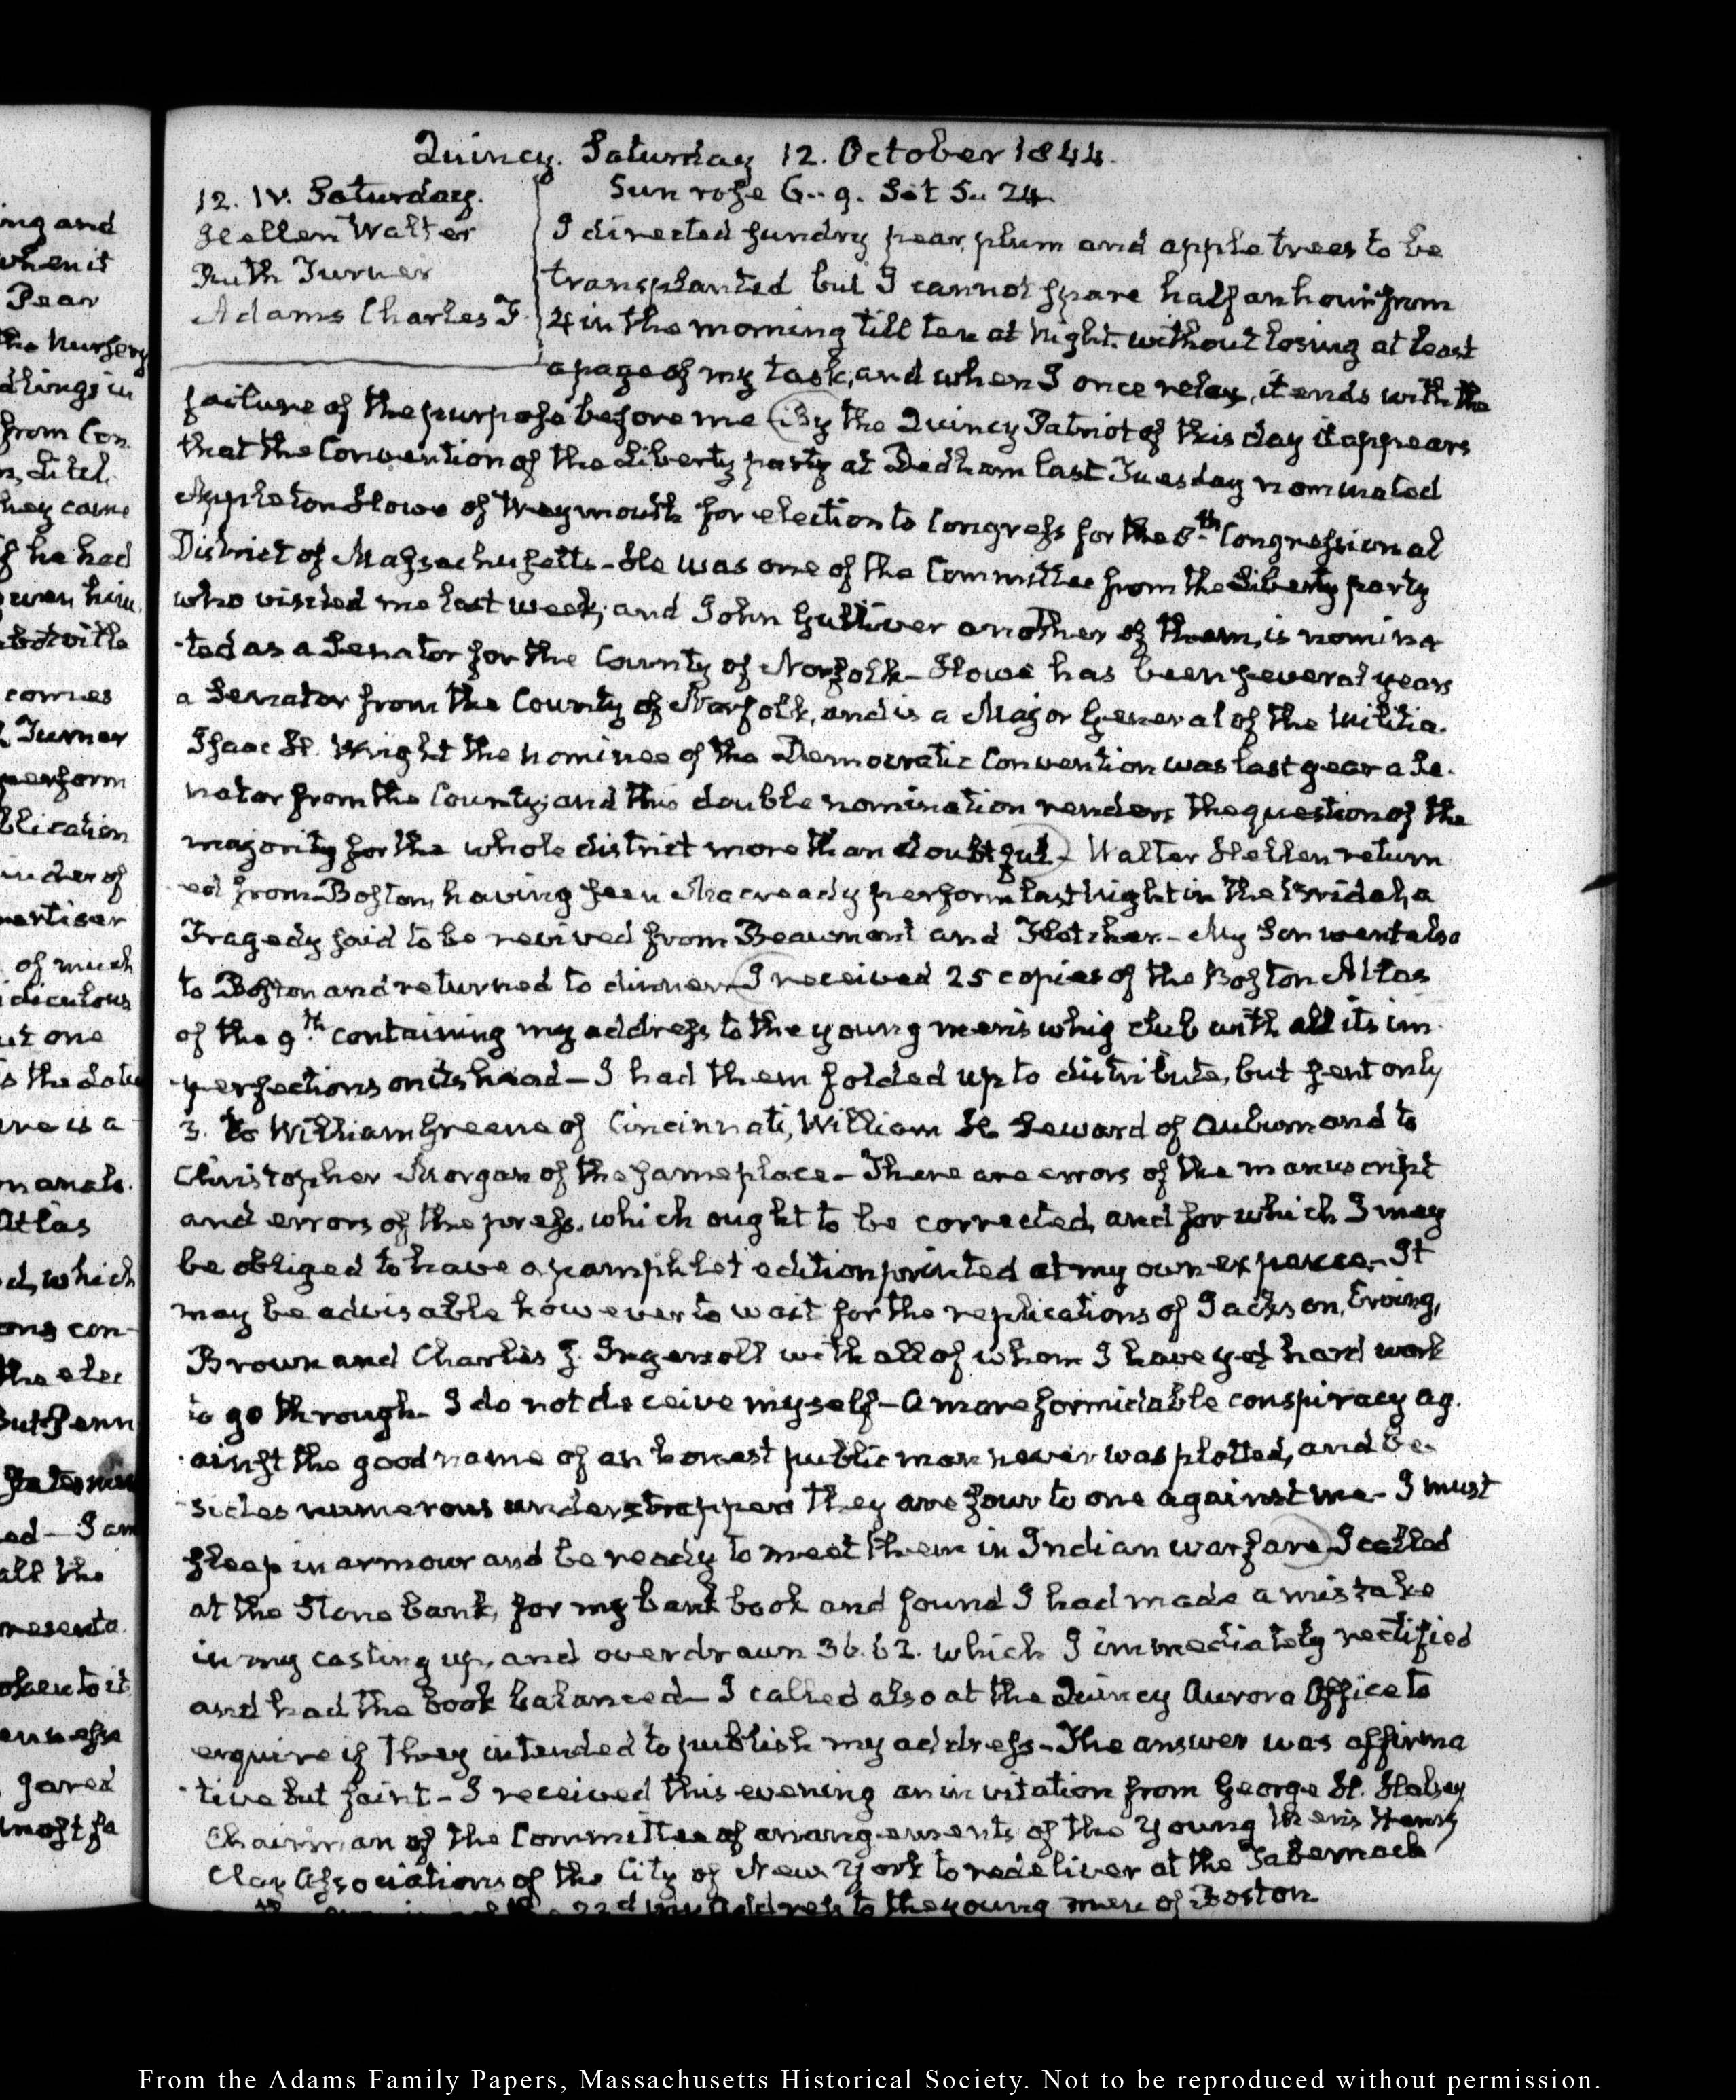 Quincy. Saturday 12. October 1844.
12. IV. Saturday.
Hellen Walter
Ruth Turner
Adams Charles F.
Sun rose 6.. 9. Set 5.. 24.
I directed sundry pear, plum and apple trees to be
transplanted but I cannot spare half an hour from
4 in the morning till ten at Night. without losing at least
a page of my task, and when I once relax, it ends with the
failure of the purpose before me By the Quincy Patriot of this day it appears
that the Convention of the Liberty party at Dedham last Tuesday nominated
Appleton Howe of Weymouth for election to Congress for the 8th. Congressional
District of Massachusetts - He was one of the Committee from the Liberty party
who visited me last week, and John Gulliver another of them, is nomina
-ted as a Senator for the County of Norfolk - Howe has been several years
a Senator from the County of Norfolk, and is a Major General of the Militia.
Isaac H. Wright the nominee of the Democratic Convention was last year a Se-
nator from the County; and this double nomination renders the question of the
majority for the whole district more than doubtful - Walter Hellen return
-ed from Boston, having seen Macready perform last night in the Bridal, a
Tragedy said to be revived from Beaumont and Fletcher. - My Son went also
to Boston and returned to dinner - I received 25 copies of the Boston Atlas
of the 9th. containing my address to the young men's whig club with all its im-
-perfections on its head - I had them folded up to distribute, but sent only
3. to William Greene of Cincinnati, William H. Seward of Auburn and to
Christopher Morgan of the same place - There are errors of the manuscript
and errors of the press, which ought to be corrected, and for which I may
be obliged to have a pamphlet edition printed at my own expence. - It
may be advisable however to wait for the replications of Jackson, Erving,
Brown and Charles J. Ingersoll with all of whom I have yet hard work
to go through - I do not deceive myself - A more formidable conspiracy ag-
-ainst the good name of an honest public man never was plotted, and be-
-sides numerous understrappers they are four to one against me - I must
sleep in armour and be ready to meet them in Indian warfare I called
at the Stone bank, for my bank book and found I had made a mistake
in my casting up, and overdrawn 36.62. which I immediately rectified
and had the book balanced - I called also at the Quincy Aurora Office to
enquire if they intended to publish my address - The answer was affirma
-tive but faint - I received this evening an invitation from George H. Halsey
Chairman of the Committee of arrangements of the Young Men's Henry
Clay Associations of the City of New York to redeliver at the Tabernacle
22d my Address to the young men of Boston
ing and
when it
Pear
the Nursery
from Con
they came
if he had
comes
Turner
perform
of much
ut one
Atlas
d, which
ons con-
the elec
all the
From the Adams Family Papers, Massachusetts Historical Society. Not to be reproduced without permission.